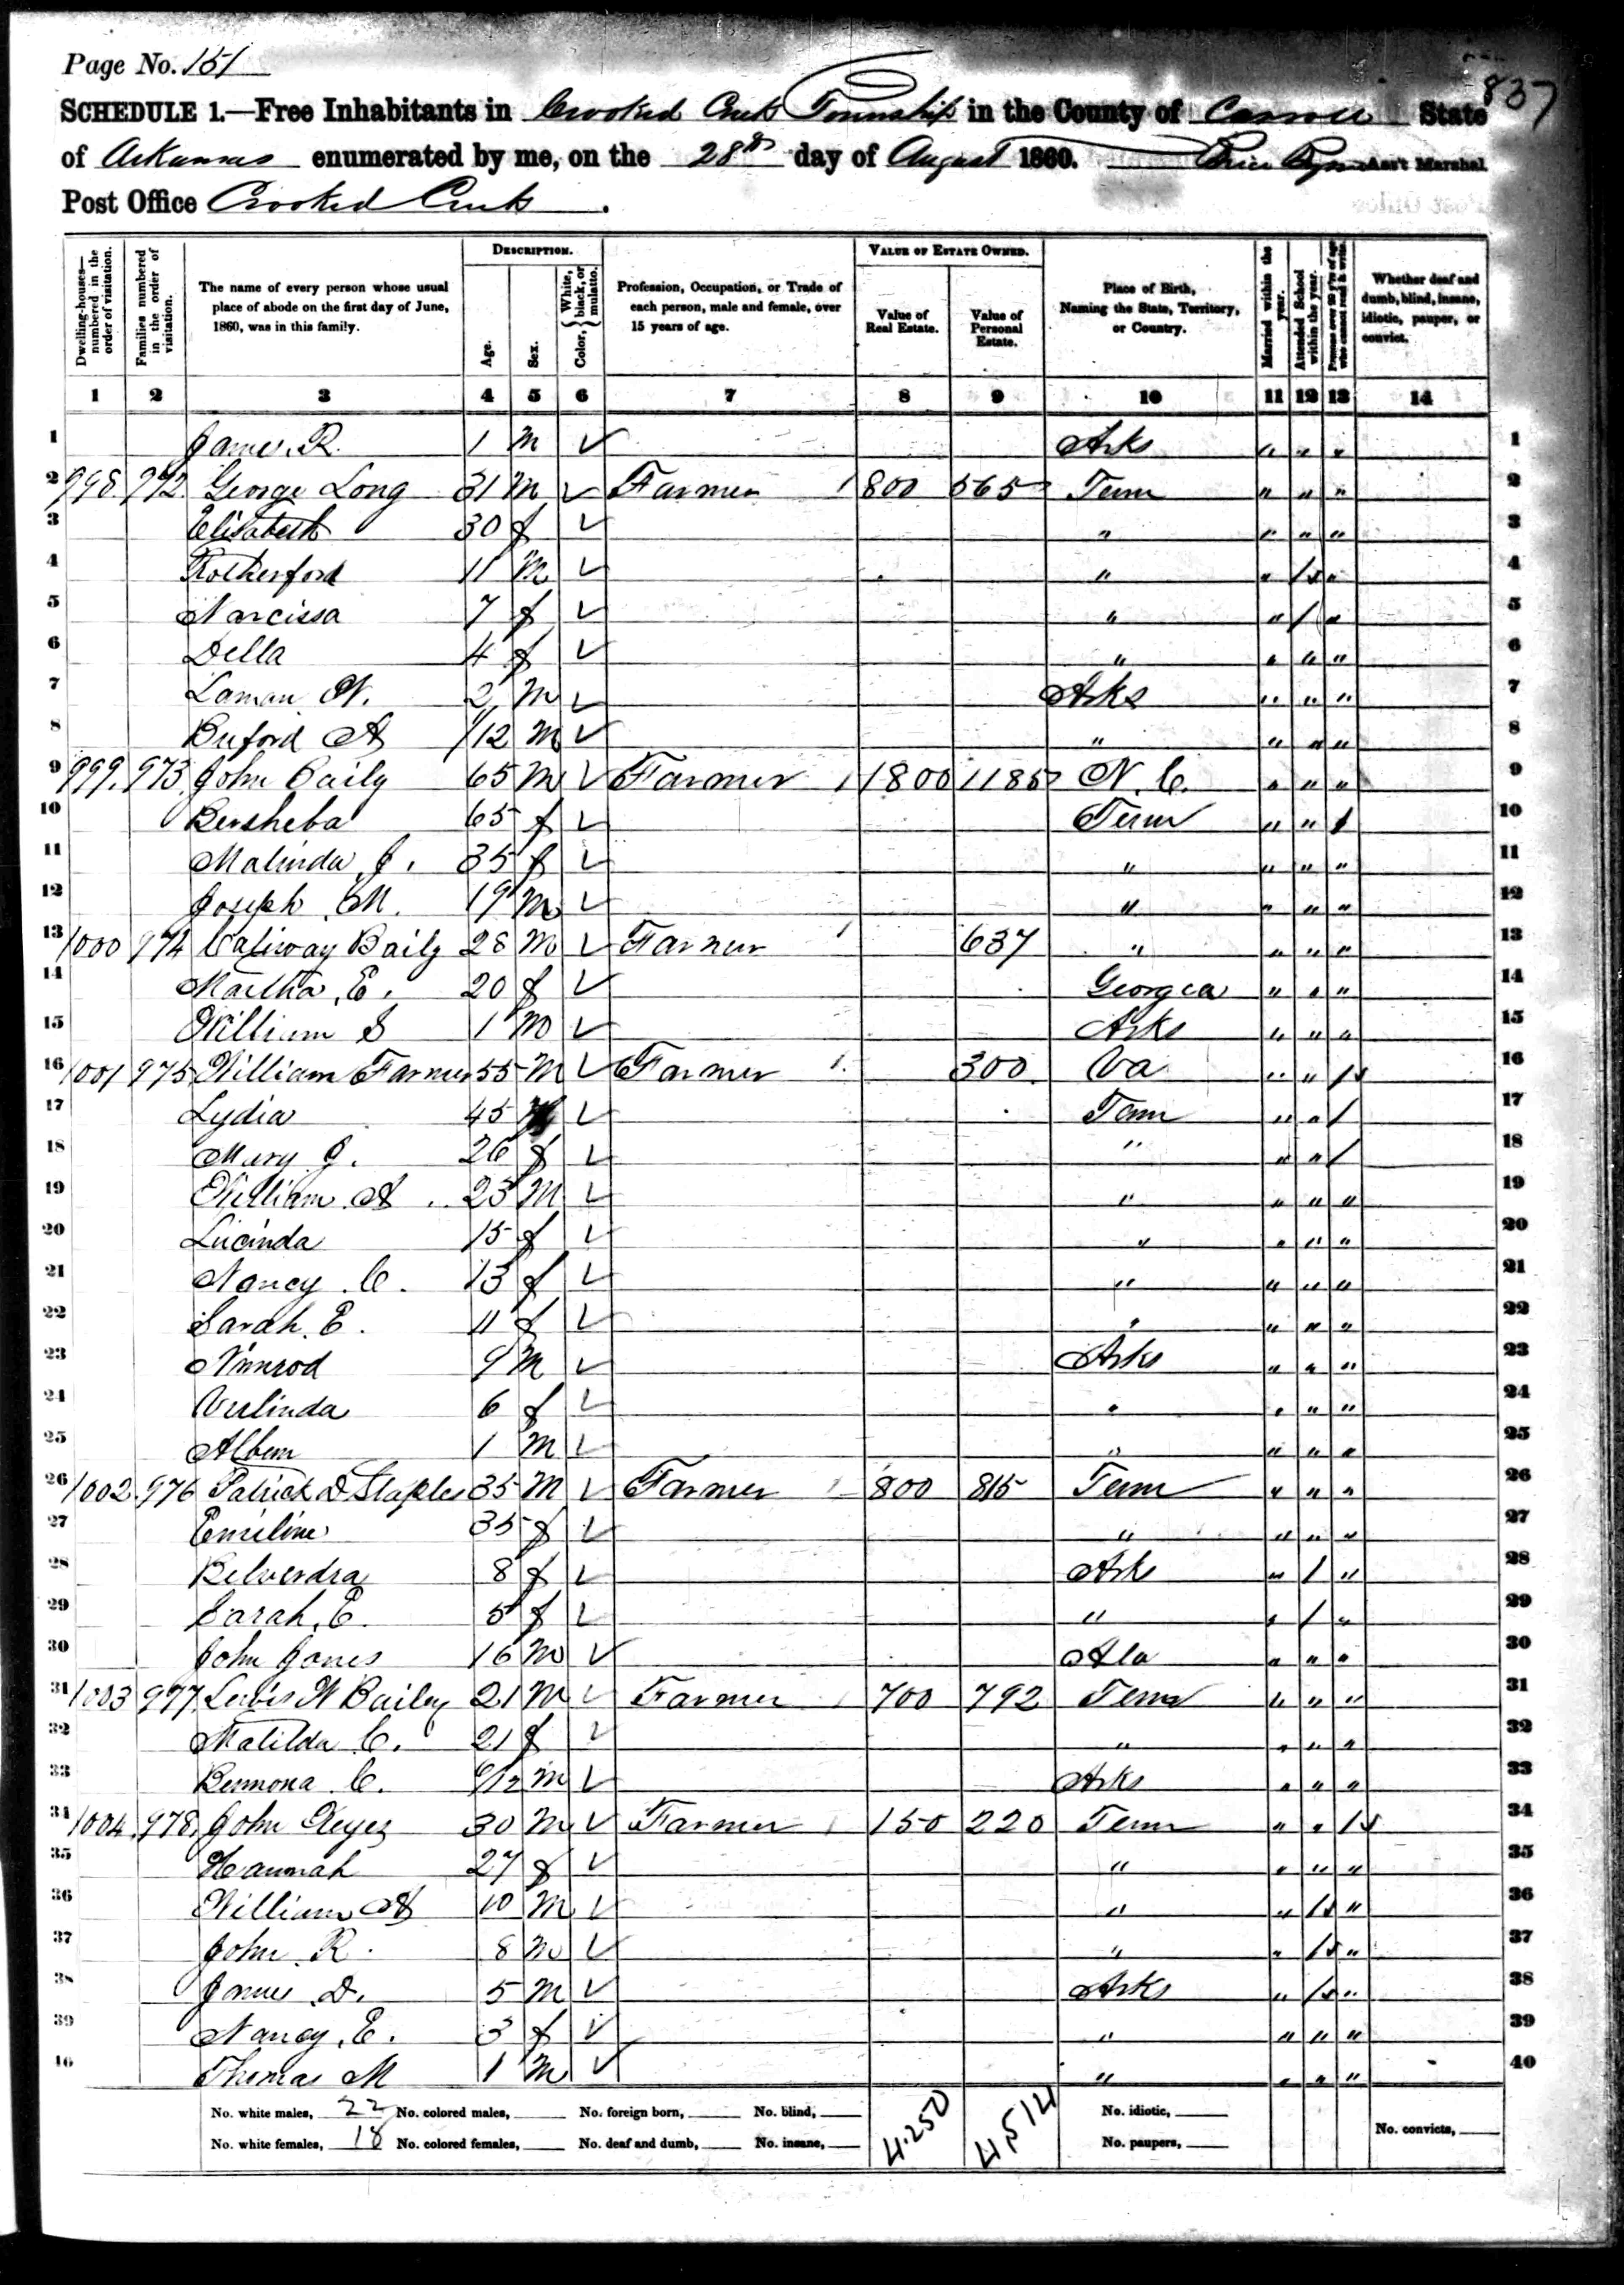 Page No. 151
837
SCHEDULE 1.—Free Inhabitants in Crooked Creek Township in the County of Carroll State
of Arkansas enumerated by me, on the 28th day of August 1860. Ass't Marshal
Post Office Crooked Creek.
Dwelling-houses—numbered in the order of visitation.
Families numbered in the order of visitation.
The name of every person whose usual place of abode on the first day of June, 1860, was in this family.
DESCRIPTION.
Age.
Sex.
Color, { White, black, or mulatto.
Profession, Occupation, or Trade of each person, male and female, over 15 years of age.
VALUE OF ESTATE OWNED.
Value of Real Estate.
Value of Personal Estate.
Place of Birth, Naming the State, Territory, or Country.
Married within the year.
Attended School within the year.
Persons over 20 y'rs of age who cannot read & write.
Whether deaf and dumb, blind, insane, idiotic, pauper, or convict.
1 2 3 4 5 6 7 8 9 10 11 12 13 14
1 James. R. 1 m ✓ Arks " " " 1
2 998. 972. George Long 31 m ✓ Farmer 1 800 565 Tenn " " " 2
3 Elisabeth 30 f ✓ " " " " 3
4 Rotherford 11 m ✓ " " / " 4
5 Narcissa 7 f ✓ " " / " 5
6 Della 4 f ✓ " " " " 6
7 Laman N. 2 m ✓ Arks " " " 7
8 Buford A /12 m ✓ " " " " 8
9 999. 973. John Baily 65 m ✓ Farmer 1 1800 1185 N. C. " " " 9
10 Bersheba 65 f ✓ Tenn " " / 10
11 Malinda J. 35 f ✓ " " " " 11
12 Joseph M. 19 m ✓ " " " " 12
13 1000 974 Caliway Baily 28 m ✓ Farmer 1 637 " " " " 13
14 Martha. E. 20 f ✓ Georgia " " " 14
15 William S 1 m ✓ Arks " " " 15
16 1001 975 William Farmer 55 m ✓ Farmer 1 300 Va " " / 16
17 Lydia 45 f ✓ Tenn " " / 17
18 Mary J. 26 f ✓ " " " / 18
19 William A. 23 m ✓ " " " " 19
20 Lucinda 15 f ✓ " " " " 20
21 Nancy C. 13 f ✓ " " " " 21
22 Sarah. E. 11 f ✓ " " " " 22
23 Nimrod 9 m ✓ Arks " " " 23
24 Verlinda 6 f ✓ " " " " 24
25 Albern 1 m ✓ " " " " 25
26 1002. 976 Patrick D Staples 35 m ✓ Farmer 1 800 815 Tenn " " " 26
27 Emiline 35 f ✓ " " " " 27
28 Belverdra 8 f ✓ Ark " / " 28
29 Sarah. E. 5 f ✓ " " / " 29
30 John Jones 16 m ✓ Ala " " " 30
31 1003 977. Lewis W Bailey 21 m ✓ Farmer 1 700 792 Tenn " " " 31
32 Matilda C. 21 f ✓ " " " " 32
33 C. /12 m ✓ Arks " " " 33
34 1004. 978. John Keyes 30 m ✓ Farmer 1 150 220 Tenn " " / 34
35 Hannah 27 f ✓ " " " " 35
36 William A 10 m ✓ " " / " 36
37 John. R. 8 m ✓ " " / " 37
38 James. D. 5 m ✓ Arks " / " 38
39 Nancy. E. 3 f ✓ " " " " 39
40 Thomas M 1 m ✓ " " " " 40
No. white males, 22 No. colored males, No. foreign born, No. blind, 4.250 4,514 No. idiotic, No. convicts,
No. white females, 18 No. colored females, No. deaf and dumb, No. insane, No. paupers,